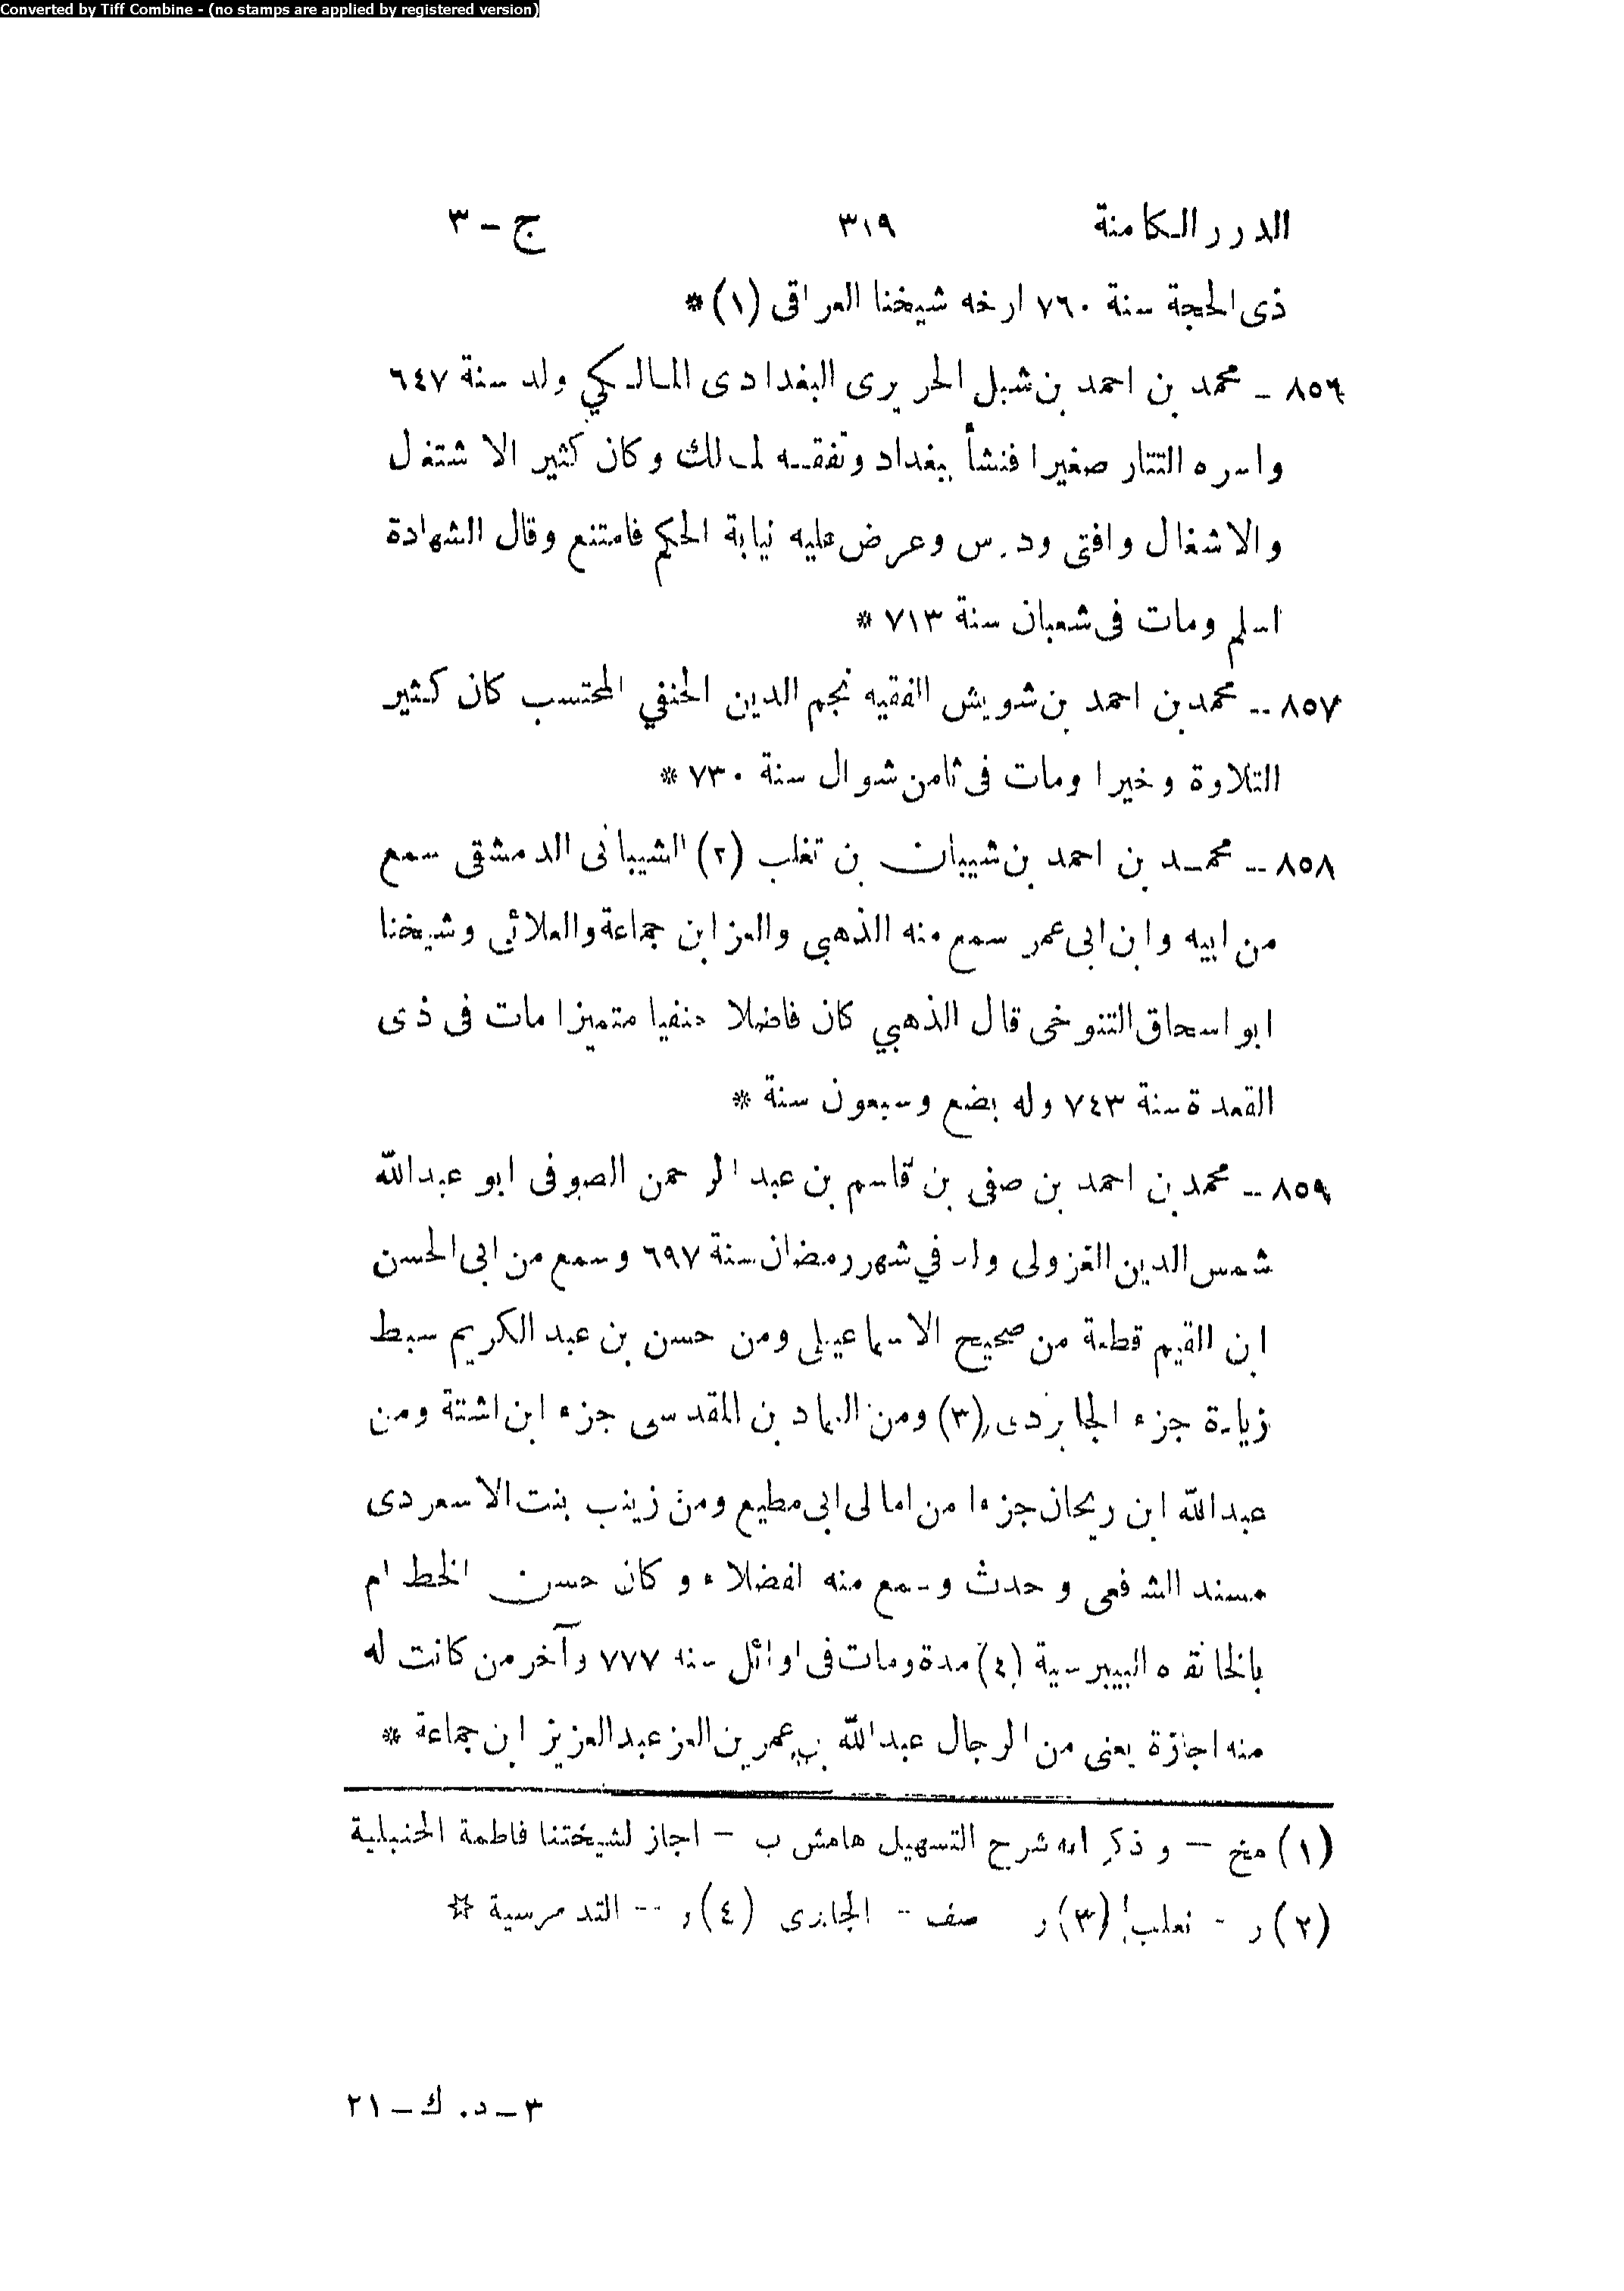 Converted by Tiff Combine - (no stamps are applied by registered version)
الدرر الكامنة ٣١٩ ج - ٣
ذى الحجة سنة ٧٦٠ ارخه شيخنا العراقى (١) *
٨٥٦ - محمد بن احمد بن شبل الحريرى البغدادى المالكي ولد سنة ٦٤٧
واسره التتار صغيرا فنشأ ببغداد وتفقه لمالك وكان كثير الاشتغال
والاشغال وافتى ودرس وعرض عليه نيابة الحكم فامتنع وقال الشهادة
اسلم ومات فى شعبان سنة ٧١٣ *
٨٥٧ - محمد بن احمد بن شويش الفقيه نجم الدين الحنفي المحتسب كان كثير
التلاوة وخيرا ومات فى ثامن شوال سنة ٧٣٠ *
٨٥٨ - محمد بن احمد بن شيبان بن تغلب (٢) الشيبانى الدمشقى سمع
من ابيه وابن ابى عمر سمع منه الذهبي والعز ابن جماعة والعلائى وشيخنا
ابو اسحاق التنوخى قال الذهبي كان فاضلا حنفيا متميزا مات فى ذى
القعدة سنة ٧٤٣ وله بضع وسبعون سنة *
٨٥٩ - محمد بن احمد بن صفى بن قاسم بن عبد الرحمن الصوفى ابو عبدالله
شمس الدين الغزولى ولد في شهر رمضان سنة ٦٩٧ وسمع من ابى الحسن
ابن القيم قطعة من صحيح الاسماعيلى ومن حسن بن عبد الكريم سبط
زيادة جزء الجابردى (٣) ومن العماد بن المقدسى جزء ابن اشتة ومن
عبدالله ابن ريحان جزءا من امالى ابى مطيع ومن زينب بنت الاسعردى
مسند الشافعى وحدث وسمع منه الفضلاء وكان حسن الخط ام
بالخانقاه البيبرسية (٤) مدة ومات فى اوائل سنه ٧٧٧ وآخر من كانت له
منه اجازة يعنى من الرجال عبدالله بن عمر بن العز عبدالعزيز ابن جماعة *
(١) مخ - وذكر انه شرح التسهيل هامش ب - اجاز لشيختنا فاطمة الحنبلية
(٢) ر - ثعلب (٣) ر صف - الجابرى (٤) ر - التدمرسية *
٣ - د. ك - ٢١